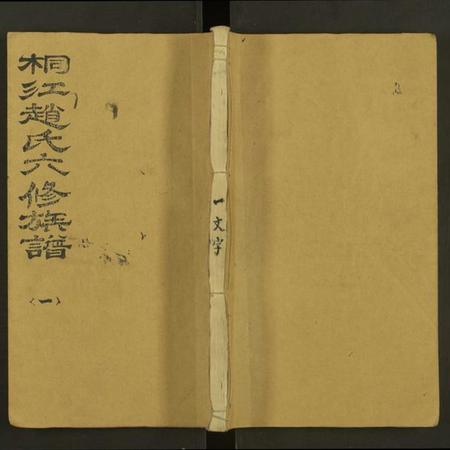 桐江趙氏六修族譜
〈一〉
一文字